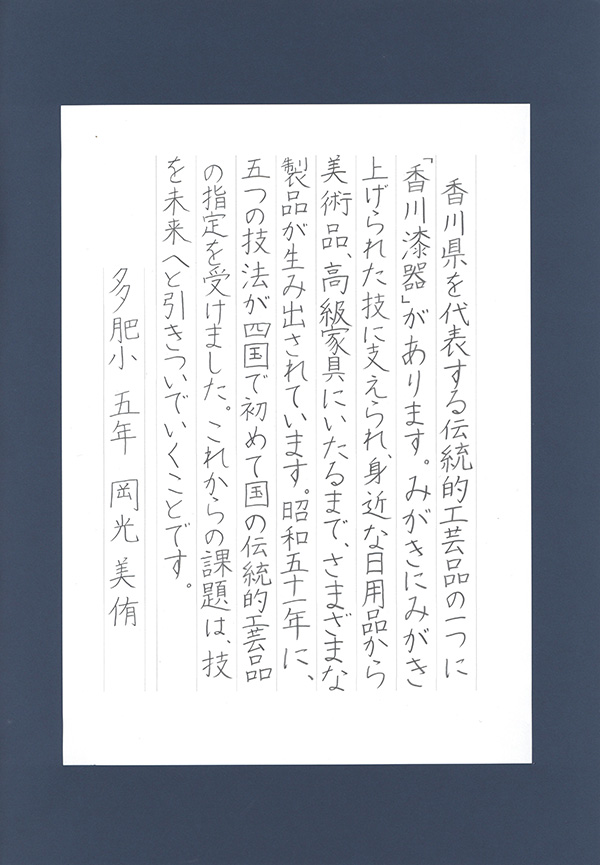 香川県を代表する伝統的工芸品の一つに
「香川漆器」があります。みがきにみがき
上げられた技に支えられ、身近な日用品から
美術品、高級家具にいたるまで、さまざまな
製品が生み出されています。昭和五十一年に、
五つの技法が四国で初めて国の伝統的工芸品
の指定を受けました。これからの課題は、技
を未来へと引きついでいくことです。
多肥小 五年 岡光美侑